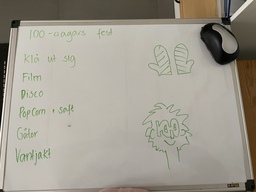 100-dagars fest
Klä ut sig
Film
Disco
Popcorn + saft
Gåtor
Varmjakt
100